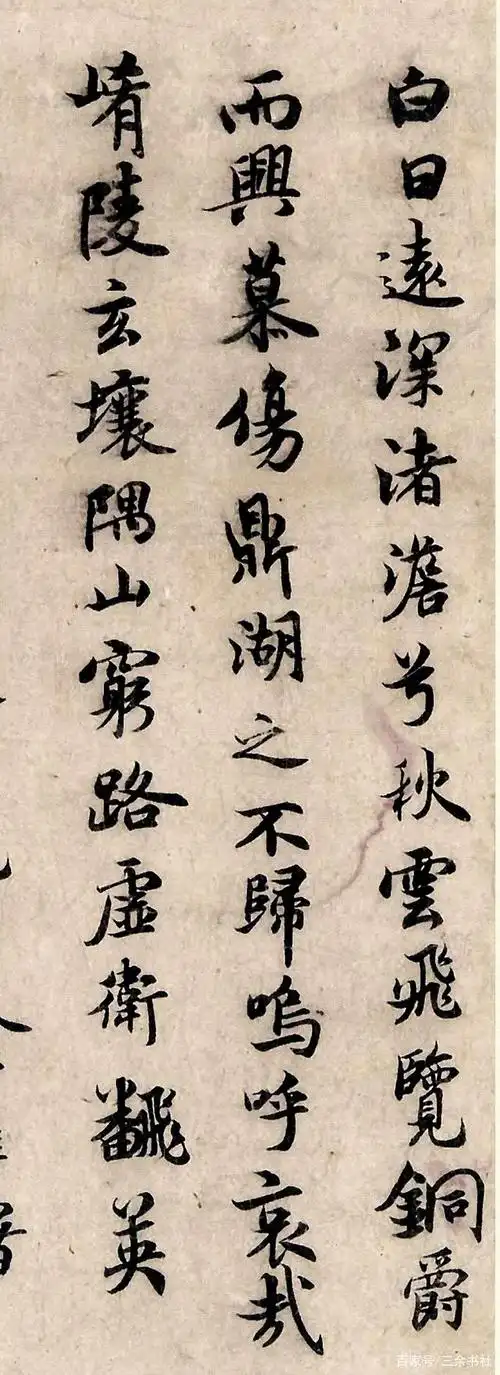 白日遠深渚澹兮秋雲飛覽銅爵
而興慕傷鼎湖之不歸嗚呼哀哉
崤陵玄壤隅山窮路虛衛飜英
百家号/三余书社